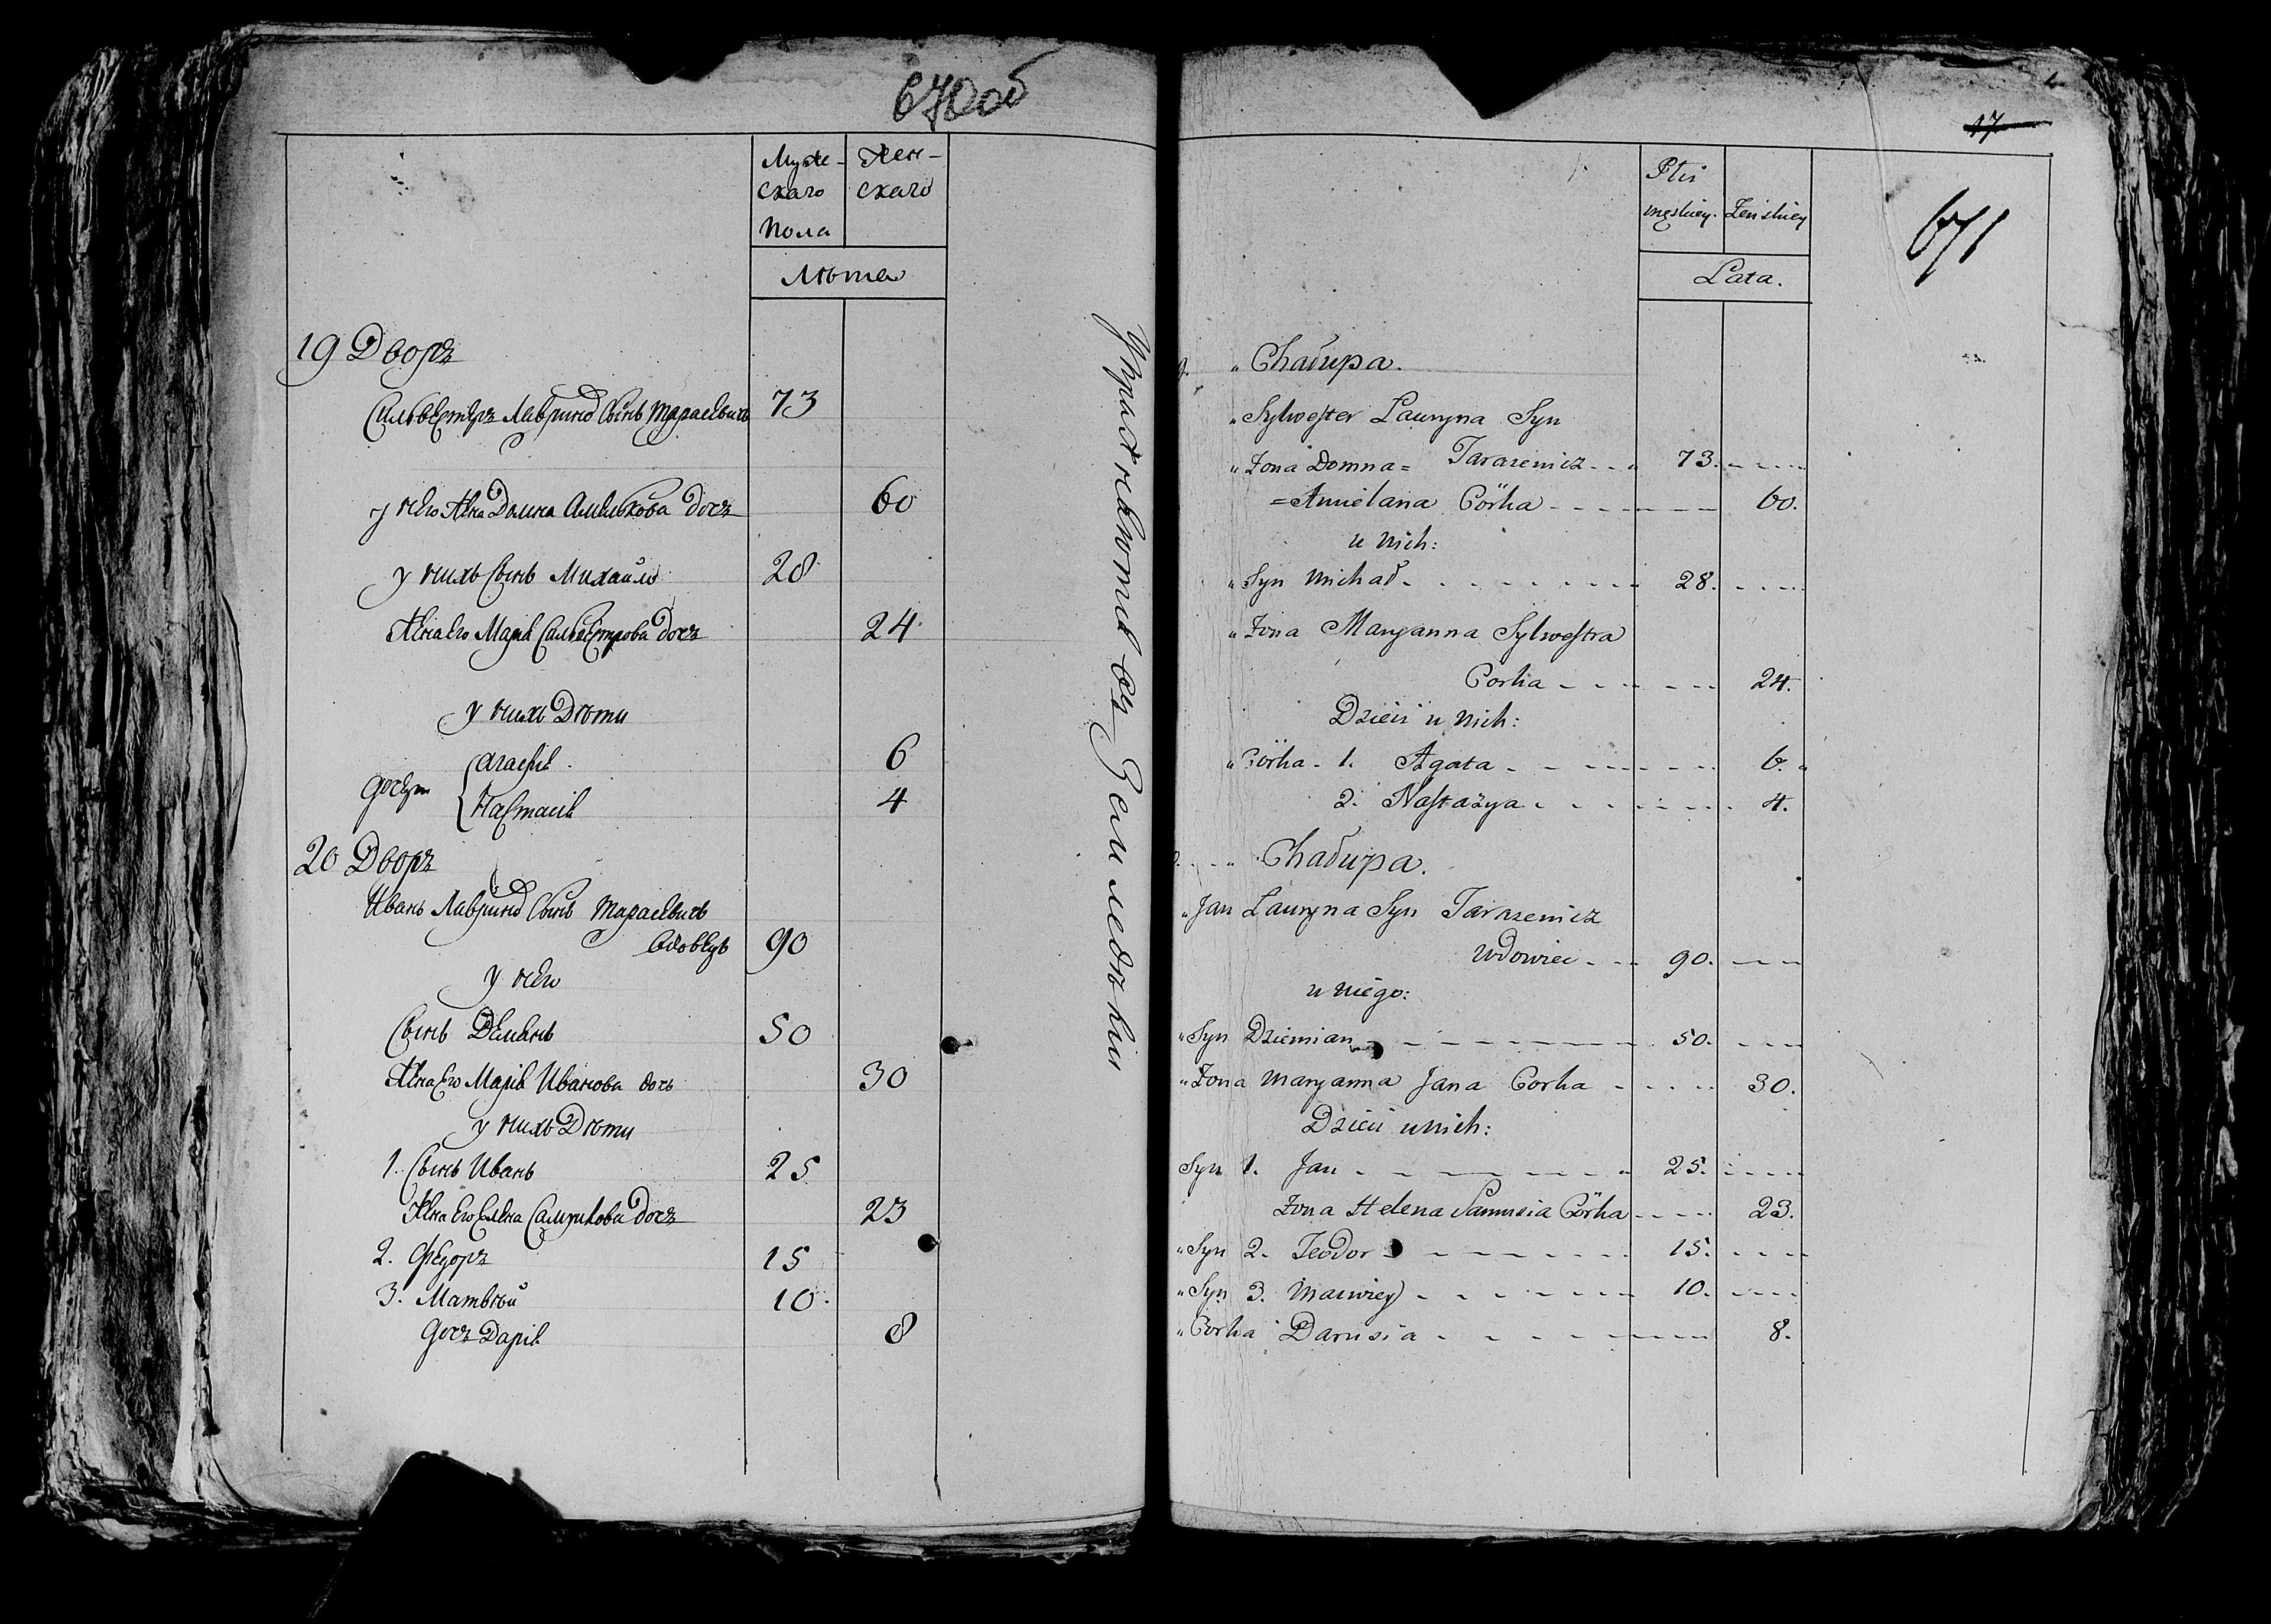 670об
Муже-
скаго
пола
Жен-
скаго
Лѣта
19 Дворъ
Сильвестеръ Лаврина Сынъ Тарасевичъ 73
у него Жена Домна Амелькова дочъ 60
у нихъ Сынъ Михайло 28
Жена Его Марія Сильвестрова дочъ 24
у нихъ Дѣти
дочери
Агафія 6
Настасія 4
20 Дворъ
Иванъ Лаврина Сынъ Тарасевичъ
вдовецъ 90
у него
Сынъ Демянъ 50
Жена Его Марія Иванова дочь 30
у нихъ Дѣти
1. Сынъ Иванъ 25
Жена Его Елена дочъ 23
2. Федоръ 15
3. Матвѣй 10
дочъ Дарія 8
въ
17
671
Płci
męskiey. Żeńskiey
Lata.
„ Chałupa.
„ Sylwester Lauryna Syn
„ Żona Domna= Tarasewicz 73.
=Amielana Córka 60.
u nich:
„ Syn Michał 28.
„ Żona Maryanna Sylwestra
Corka 24.
Dzieci u nich:
„ Córka 1. Agata 6.
2. Nastazya 4.
„ Chałupa.
„ Jan Lauryna Syn Tarasewicz
wdowiec 90.
u niego:
„ Syn Dziemian 50.
„ Żona Maryanna Jana Corka 30.
Dzieci u nich:
Syn 1. Jan 25.
Żona Helena Córka 23.
„ Syn 2. Teodor 15.
„ Syn 3. Maciey 10.
„ Corka Darusia 8.